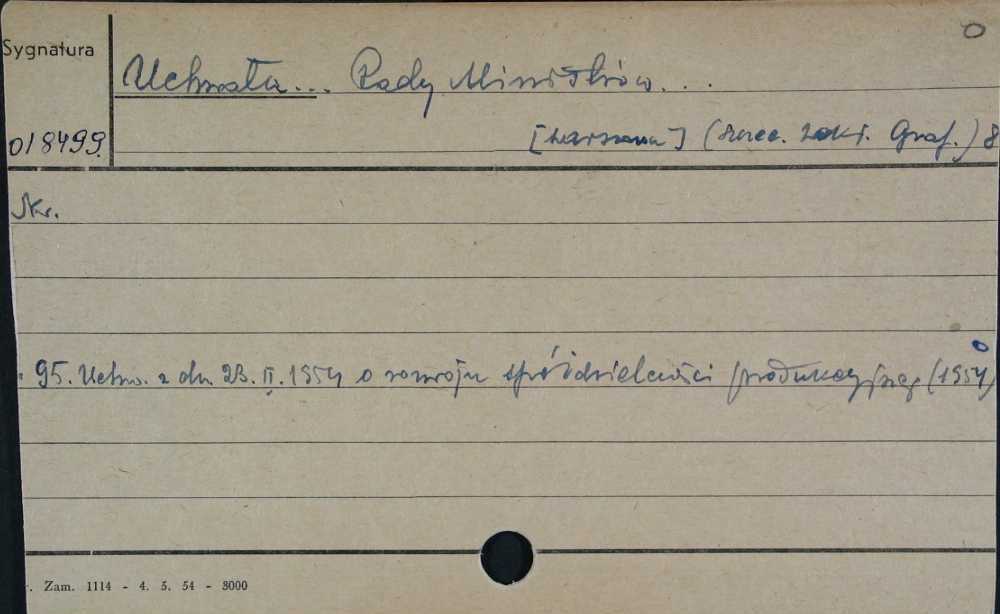 0
Sygnatura
Uchwała... Rady Ministrów...
018499.
[Warszawa] (Rzec. Zakł. Graf.) 8
Nr.
0
95. Uchw. z dn. 23. II. 1954 o rozwoju spółdzielczości produkcyjnej (1954)
. Zam. 1114 - 4. 5. 54 - 3000